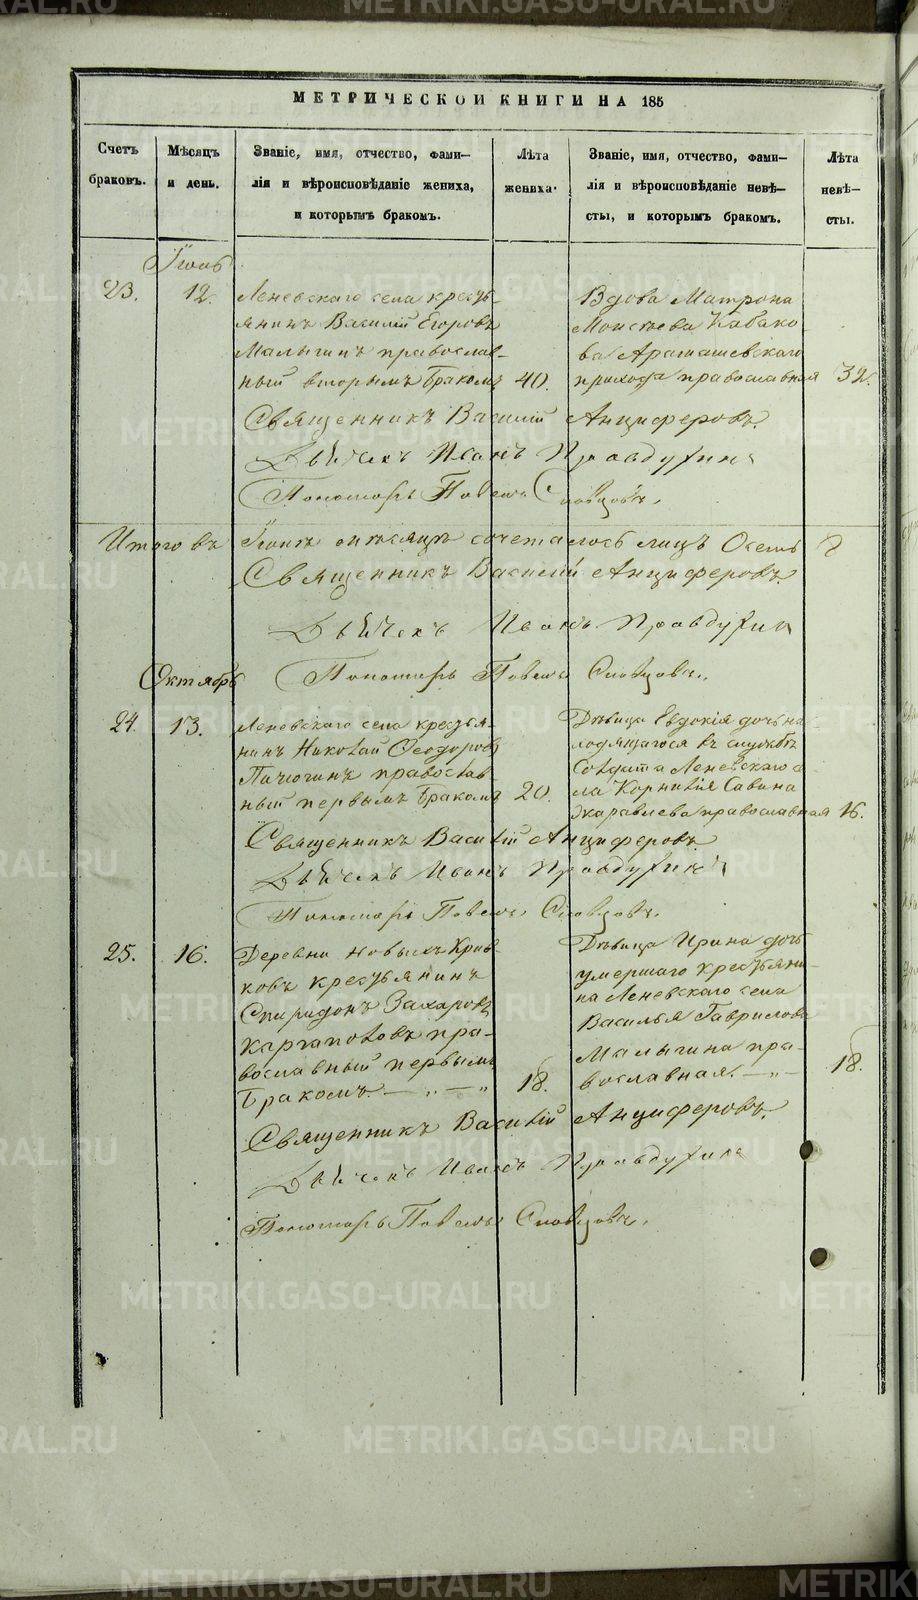 МЕТРИЧЕСКОЙ КНИГИ НА 185
Счетъ браковъ.
Мѣсяцъ и день.
Званіе, имя, отчество, фами-
лія и вѣроисповѣданіе жениха,
и которымъ бракомъ.
Лѣта жениха.
Званіе, имя, отчество, фами-
лія и вѣроисповѣданіе невѣ-
сты, и которымъ бракомъ.
Лѣта невѣ-
сты.
23. 12.
Леневскаго села кресть-
янинъ Василій Егоровъ
Малыгинъ православ-
ный вторымъ бракомъ 40.
Вдова Матрона
Моисѣева Кабако-
ва Арамашевскаго
прихода православная 32.
Священникъ Василій Анциферовъ.
Дьячекъ Иванъ Правдухинъ
Пономарь Павелъ Словцовъ.
Итого въ мѣсяцѣ сочеталось лицъ Осемь 8
Священникъ Василій Анциферовъ
Дьячекъ Иванъ Правдухинъ
Пономарь Павелъ Словцовъ.
Октябрь
24. 13.
Леневскаго села крестья-
нинъ Николай Ѳеодоровъ
православ-
ный первымъ бракомъ 20.
Дѣвица Евдокія дочь на-
ходящагося въ службѣ
Солдата Леневскаго се-
ла Корнилія Савина
православная 16.
Священникъ Василій Анциферовъ.
Дьячекъ Иванъ Правдухинъ
Пономарь Павелъ Словцовъ.
25. 16.
Деревни Новыхъ Крив-
ковъ крестьянинъ
Спиридонъ Захаровъ
Каргаполовъ пра-
вославный первымъ
бракомъ. — „ — „ 18.
Дѣвица Ирина дочь
умершаго крестьяни-
на Леневскаго села
Василья Гаврилова
Малыгина пра-
вославная. — „ — 18.
Священникъ Василій Анциферовъ.
Дьячекъ Иванъ Правдухинъ
Пономарь Павелъ Словцовъ.
METRIKI.GASO-URAL.RU